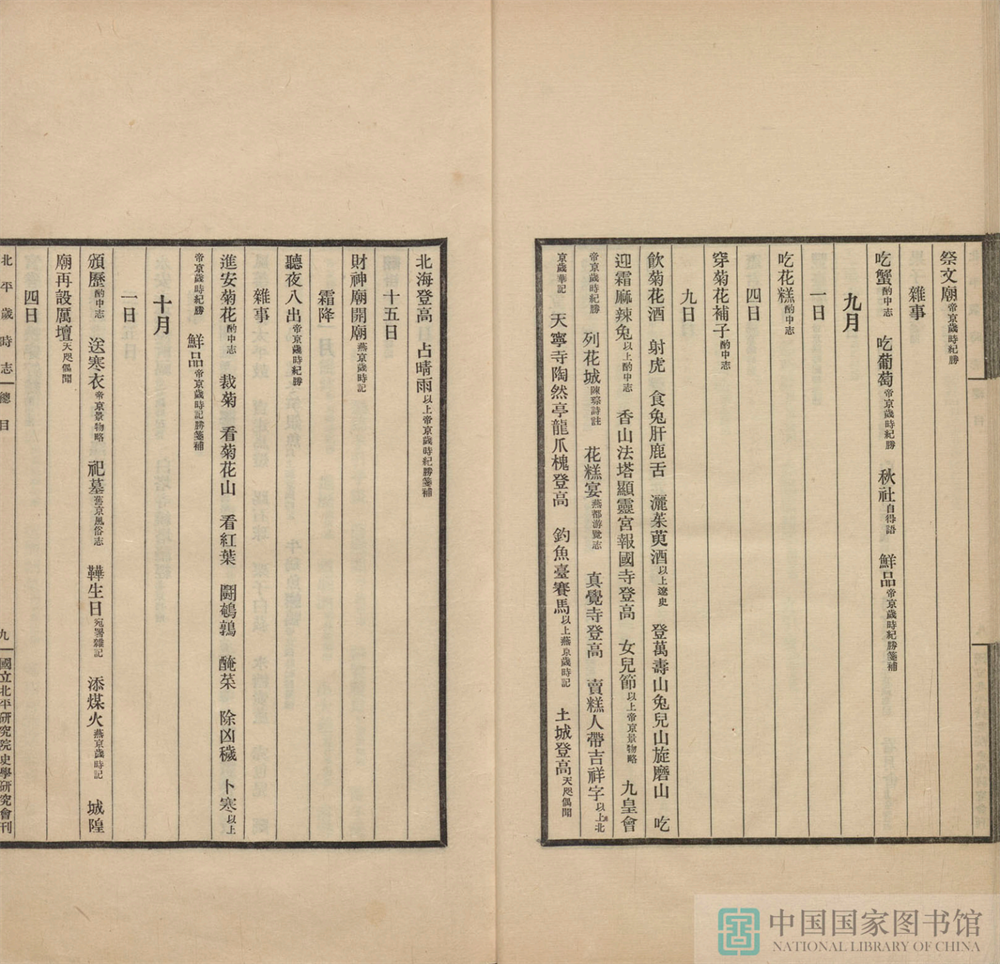 祭文廟帝京歲時紀勝
雜事
吃蟹酌中志 吃葡萄帝京歲時紀勝 秋社自得語 鮮品帝京歲時紀勝箋補
九月
一日
吃花糕酌中志
四日
穿菊花補子酌中志
九日
飲菊花酒 射虎 食兔肝鹿舌 灑茱萸酒以上遼史 登萬壽山兔兒山旋磨山 吃
迎霜麻辣兔以上酌中志 香山法塔顯靈宮報國寺登高 女兒節以上帝京景物略 九皇會
帝京歲時紀勝 列花城陳琮詩註 花糕宴燕都游覽志 真覺寺登高 賣糕人帶吉祥字以上北
京歲華記 天寧寺陶然亭龍爪槐登高 釣魚臺賽馬以上燕京歲時記 土城登高天咫偶聞
北海登高 占晴雨以上帝京歲時紀勝箋補
十五日
財神廟開廟燕京歲時記
霜降
聽夜八出帝京歲時紀勝
雜事
進安菊花酌中志 栽菊 看菊花山 看紅葉 鬭鵪鶉 醃菜 除凶穢 卜寒以上
帝京歲時紀勝 鮮品帝京歲時記勝箋補
十月
一日
頒歷酌中志 送寒衣帝京景物略 祀墓舊京風俗志 鞾生日宛署雜記 添煤火燕京歲時記 城隍
廟再設厲壇天咫偶聞
四日
北平歲時志 總目 九 國立北平研究院史學研究會刊
中国国家图书馆
NATIONAL LIBRARY OF CHINA